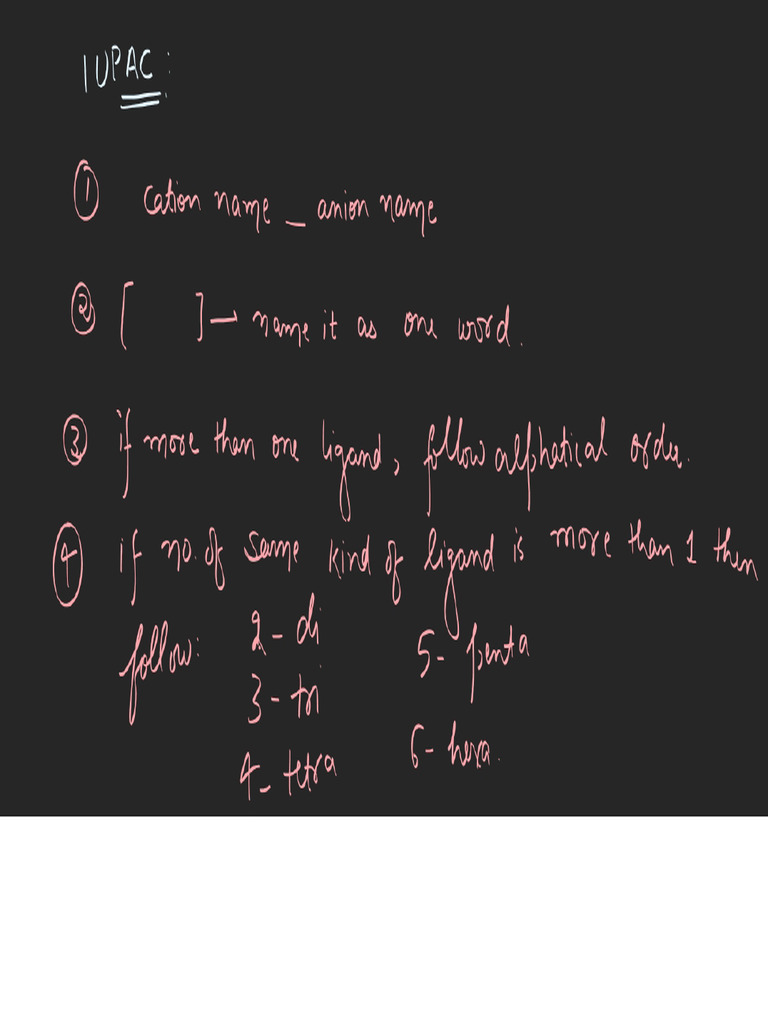 IUPAC:
① cation name – anion name
② [ ] → name it as one word.
③ if more than one ligand, follow alphatical order.
④ if no. of same kind of ligand is more than 1 then
follow: 2 - di 5 - penta
3 - tri
4 - tetra 6 - hexa.